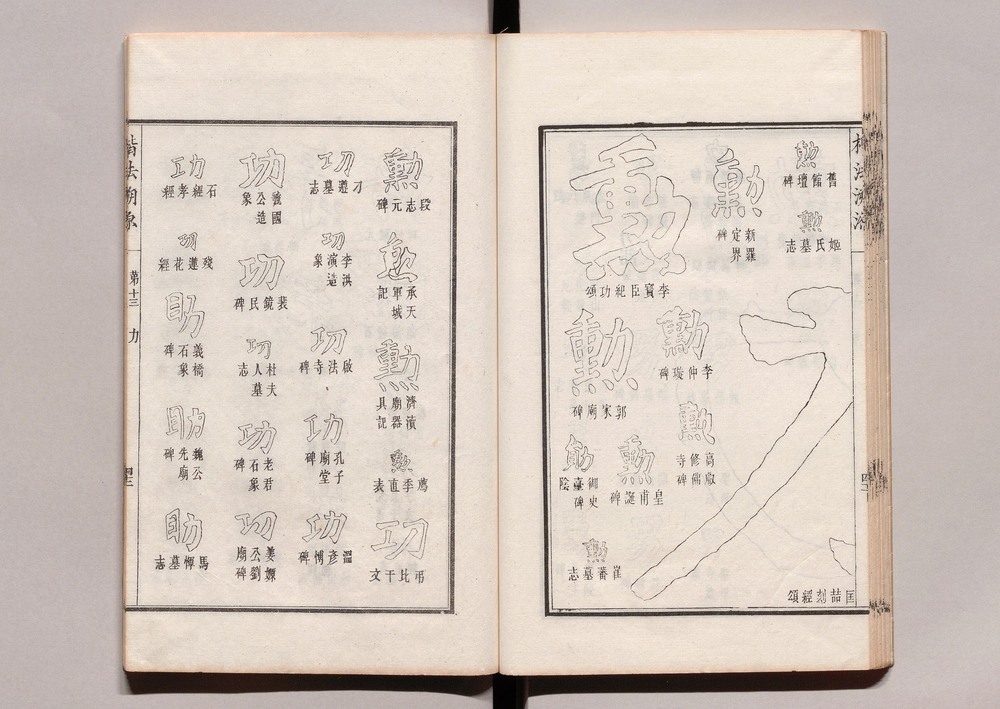 楷法溯源
勲
舊館壇碑
勲
姬氏墓志
匡喆刻經頌
勳
新羅定界碑
李寶臣紀功頌
勳
李仲璇碑
勲
高叡修佛寺碑
勳
郭家廟碑
勳
皇甫誕碑
勛
御史臺碑陰
勲
崔蕃墓志
勲
段志元碑
勲
承天軍城記
勳
濟瀆廟器具記
勲
薦季直表
功
弔比干文
功
刁遵墓志
功
李洪演造象
功
啟法寺碑
功
孔子廟堂碑
功
溫彥博碑
功
虢國公造象
功
裴鏡民碑
功
杜夫人墓志
功
老君石象碑
功
姜嫄公劉廟碑
功
石經孝經
功
殘蓮花經
助
義橋石象碑
助
魏公先廟碑
助
馬惲墓志
楷法溯源
第十三
力